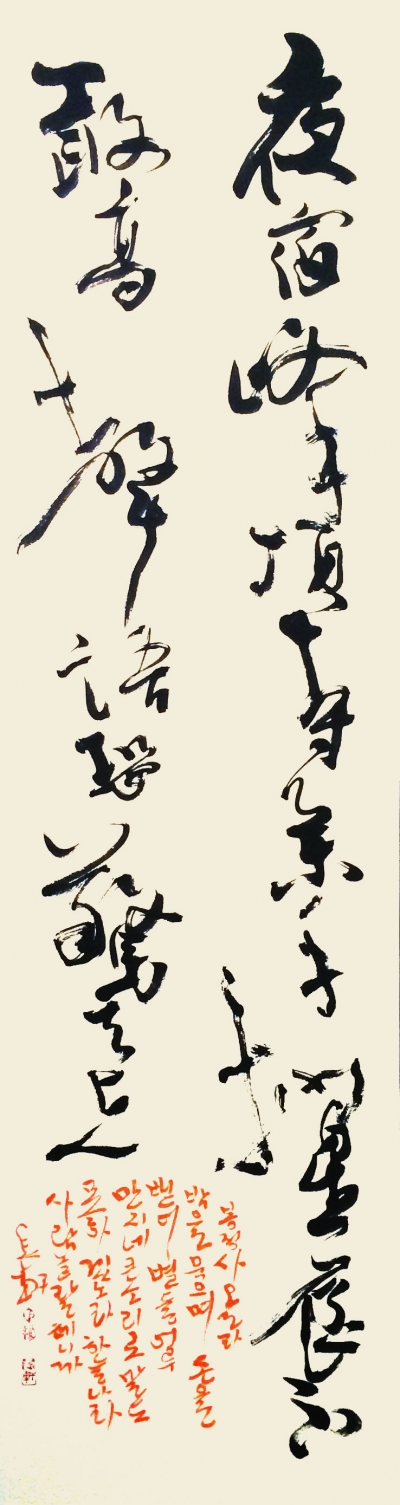 夜宿峰頂寺擧手捫星辰不
敢高聲語恐驚天上人
봉정사
밤을 묵으며 손을
뻗어 별들 어루
만지네 큰소리로 말도
못하겠노라 하늘나라
사람 놀랄테니까